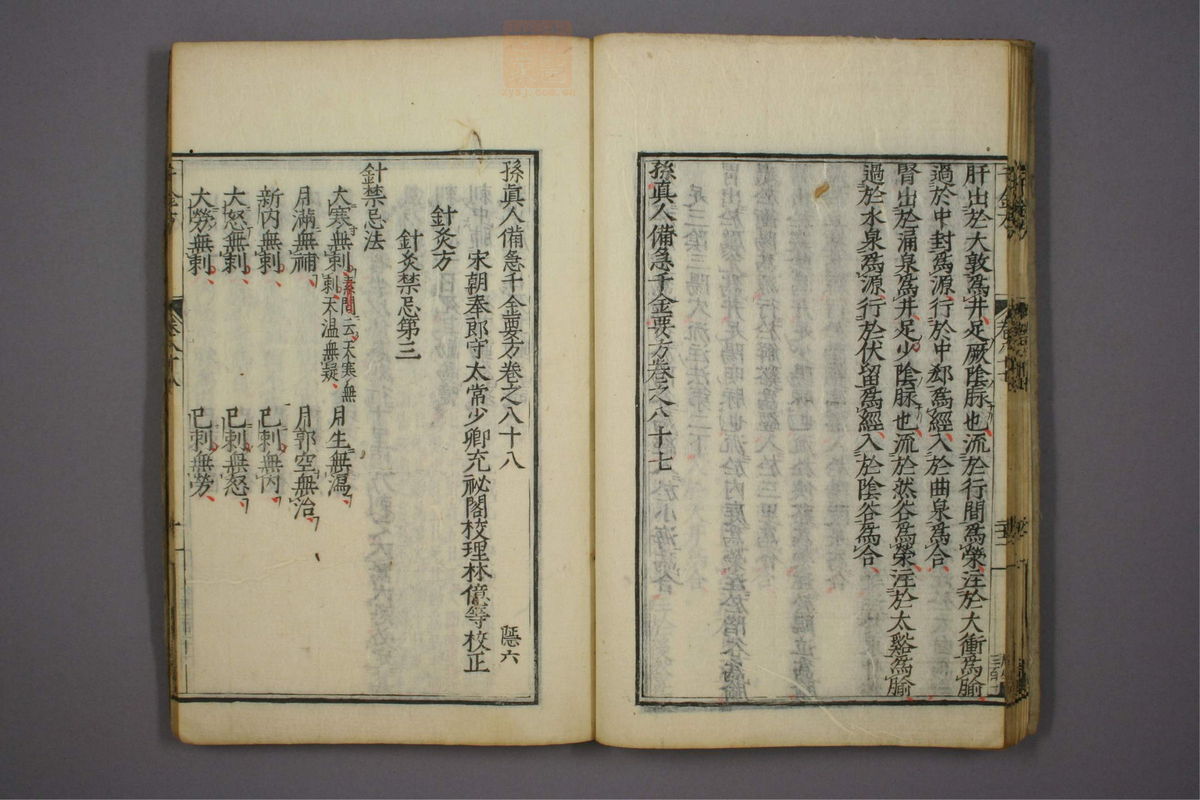 肝出於大敦爲井足厥陰脉也流於行間爲滎注於大衝爲腧
過於中封爲源行於中郄爲經入於曲泉爲合
腎出於涌泉爲井足少陰脉也流於然谷爲滎注於太谿爲腧
過於水泉爲源行於伏留爲經入於陰谷爲合
孫真人備急千金要方卷之八十七
孫真人備急千金要方卷之八十八 隱六
宋朝奉郎守太常少卿充祕閣校理林億等校正
針灸方
針灸禁忌第三
針禁忌法
大寒無刺素問云天寒無刺天温無疑 月生無瀉
月滿無補 月郭空無治
新内無刺 已刺無内
大怒無刺 已刺無怒
大勞無刺 已刺無勞
zysj.com.cn